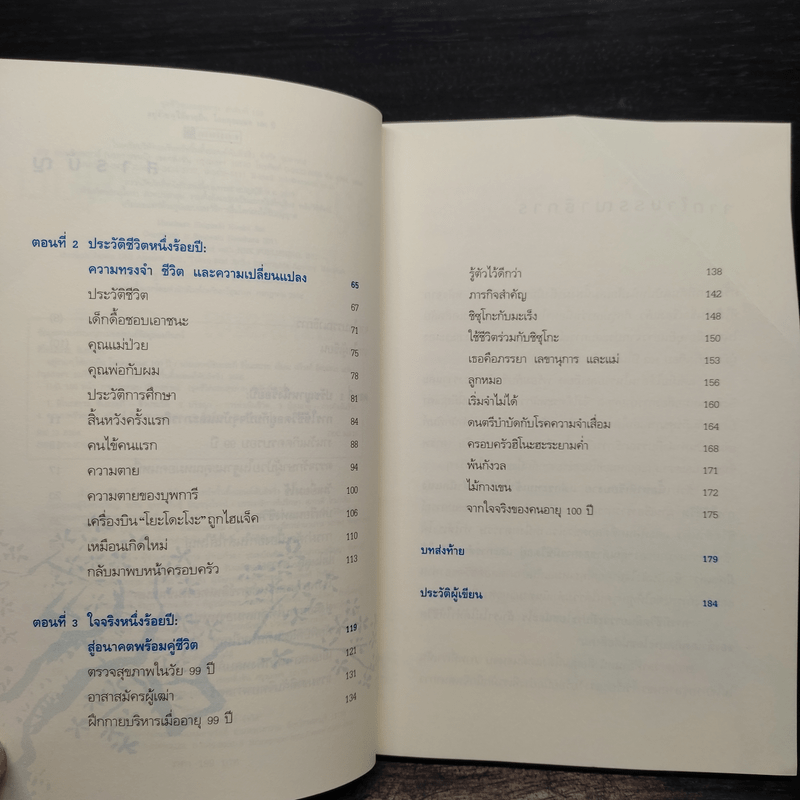 ตอนที่ 2 ประวัติชีวิตหนึ่งร้อยปี:
ความทรงจำ ชีวิต และความเปลี่ยนแปลง 65
ประวัติชีวิต 67
เด็กดื้อชอบเอาชนะ 71
คุณแม่ป่วย 75
คุณพ่อกับผม 78
ประวัติการศึกษา 81
สิ้นหวังครั้งแรก 84
คนไข้คนแรก 88
ความตาย 94
ความตายของบุพการี 100
เครื่องบิน“โยะโดะโงะ”ถูกไฮแจ็ค 106
เหมือนเกิดใหม่ 110
กลับมาพบหน้าครอบครัว 113
ตอนที่ 3 ใจจริงหนึ่งร้อยปี:
สู่อนาคตพร้อมคู่ชีวิต 119
ตรวจสุขภาพในวัย 99 ปี 121
อาสาสมัครผู้เฒ่า 131
ฝึกกายบริหารเมื่ออายุ 99 ปี 134
รู้ตัวไว้ดีกว่า 138
ภารกิจสำคัญ 142
ชิซุโกะกับมะเร็ง 148
ใช้ชีวิตร่วมกับชิซุโกะ 150
เธอคือภรรยา เลขานุการ และแม่ 153
ลูกหมอ 156
เริ่มจำไม่ได้ 160
ดนตรีบำบัดกับโรคความจำเสื่อม 164
ครอบครัวฮิโนะฮะระยามค่ำ 168
พ้นกังวล 171
ไม้กางเขน 172
จากใจจริงของคนอายุ 100 ปี 175
บทส่งท้าย 179
ประวัติผู้เขียน 184